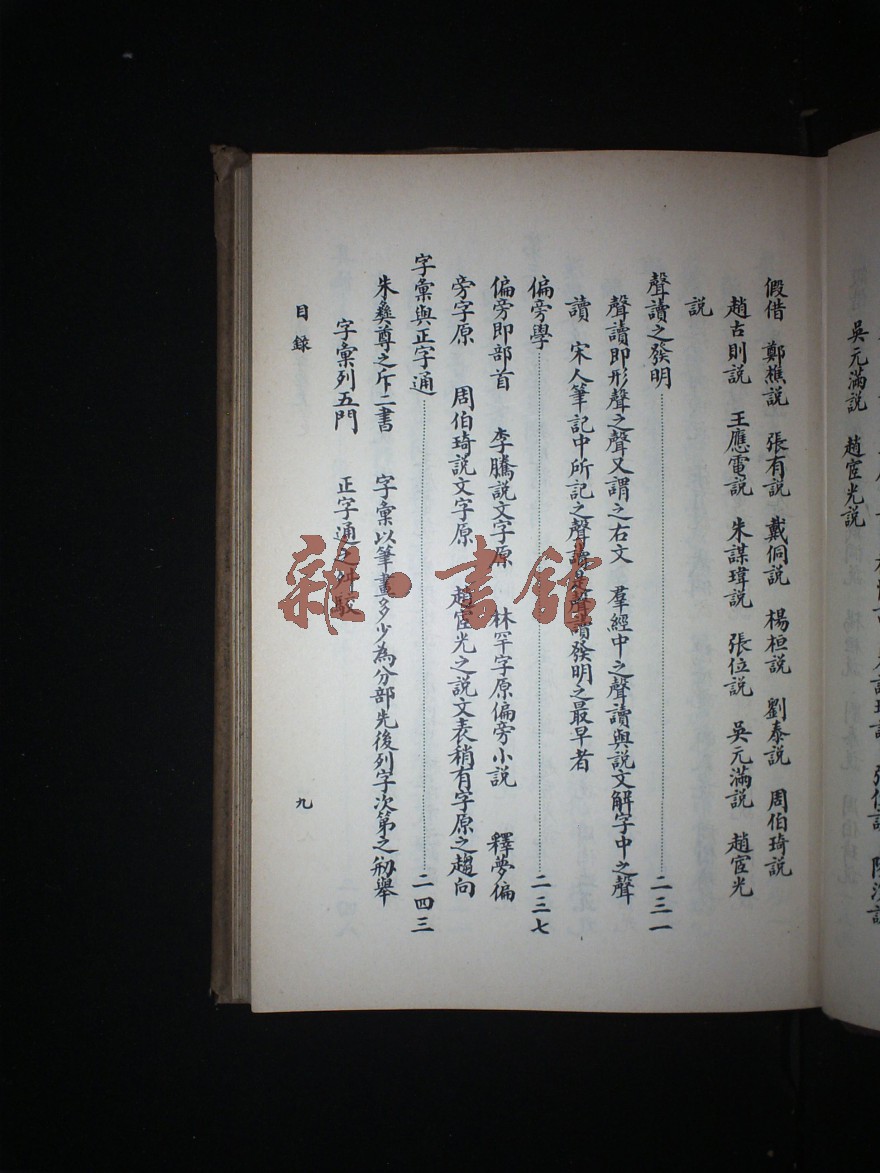 吳元滿說　趙宧光說
假借　鄭樵說　張有說　戴侗說　楊桓說　劉泰說　周伯琦說
趙古則說　王應電說　朱謀㙔說　張位說　吳元滿說　趙宧光
說
聲讀之發明……二三一
聲讀即形聲之聲又謂之右文　羣經中之聲讀與說文解字中之聲
讀　宋人筆記中所記之聲讀是聲讀發明之最早者
偏旁學……二三七
偏旁即部首　李騰說文字原　林罕字原偏旁小說　釋夢偏
旁字原　周伯琦說文字原　趙宧光之說文表稍有字原之趨向
字彙與正字通……二四三
朱彝尊之斥二書　字彙以筆畫多少為分部先後列字次第之剏舉
字彙列五門　正字通之舛駁
目錄
九
雜·書館